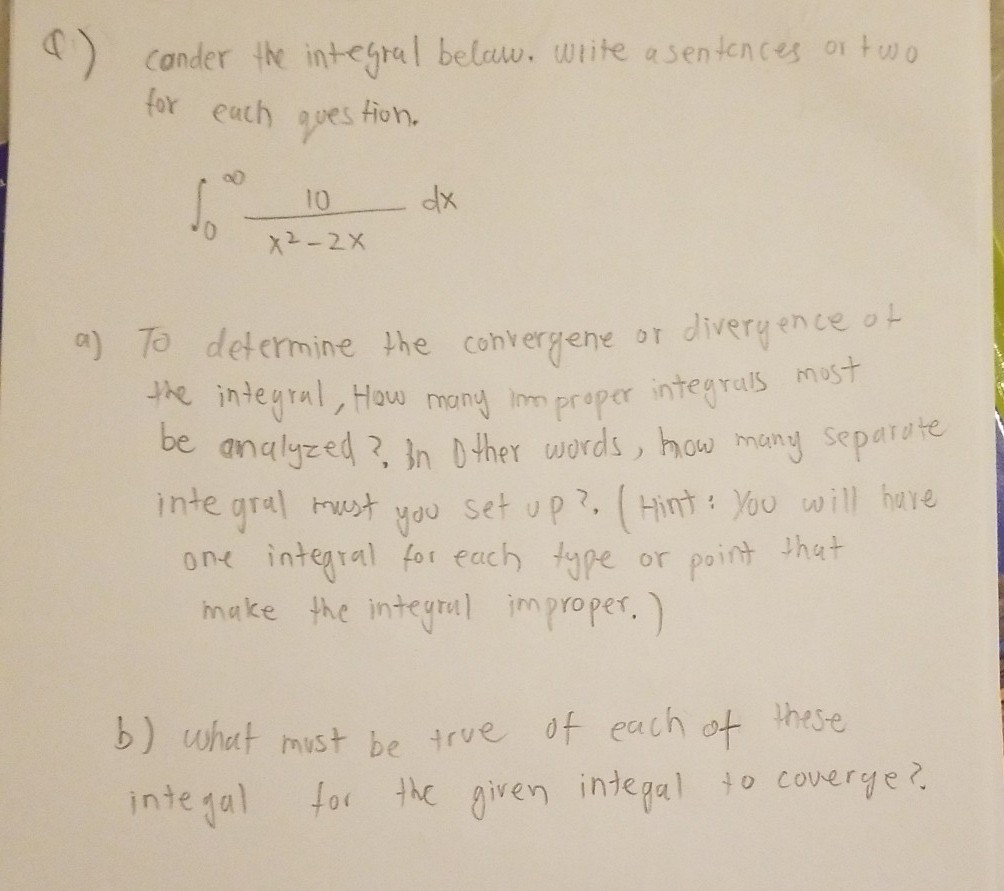 Q) conder the integral belaw. write a sentences or two
for each question.
∫₀^∞ 10 / (x² - 2x) dx
a) To determine the convergene or divergence of
the integral, How many improper integrals most
be analyzed?, In Other words, how many separate
integral must you set up?. (Hint: You will have
one integral for each type or point that
make the integral improper.)
b) what must be true of each of these
integal for the given integal to coverge?.